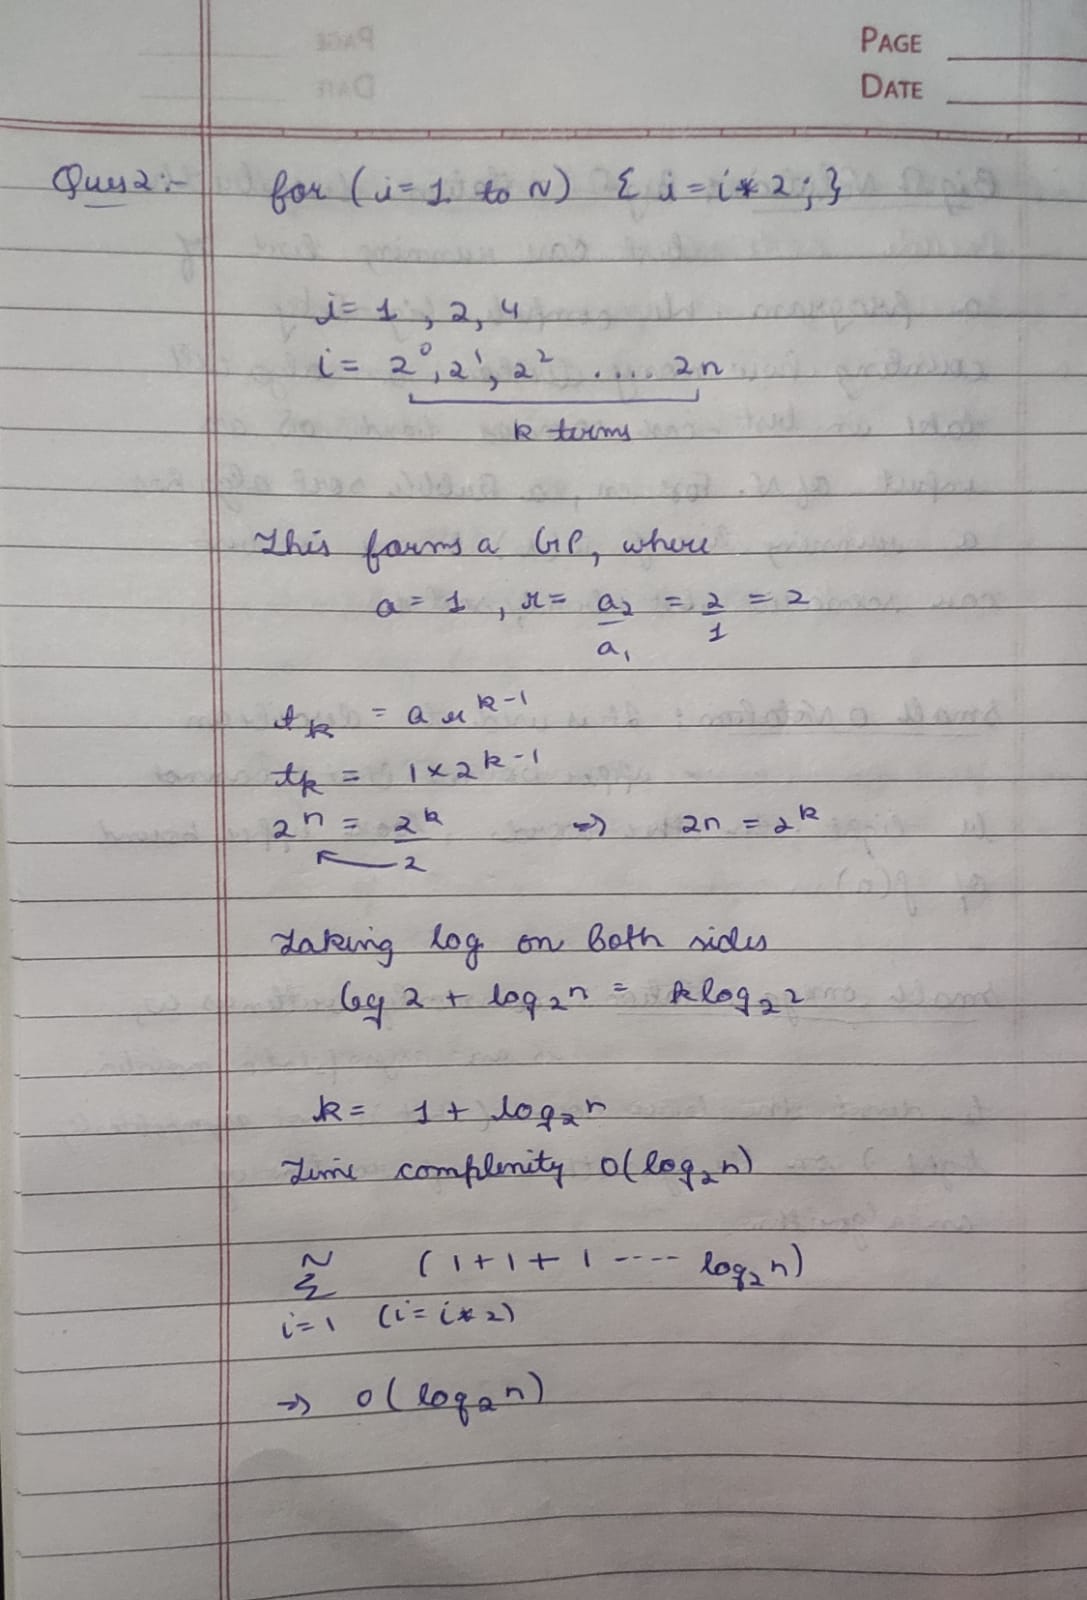 PAGE
DATE
Ques 2:- for (i=1 to N) { i = i * 2 ; }
i = 1, 2, 4
i = 2⁰, 2¹, 2² .... 2n
k terms
This forms a GP, where
a = 1, r = a₂/a₁ = 2/1 = 2
tₖ = a rᵏ⁻¹
tₖ = 1 × 2ᵏ⁻¹
2ⁿ = 2ᵏ/2 => 2n = 2ᵏ
Taking log on Both sides
log 2 + log₂n = k log₂2
k = 1 + log₂n
Time complenity O(log₂n)
N Σ i=1 (i = i * 2) (1 + 1 + 1 ---- log₂n)
=> O(log₂n)